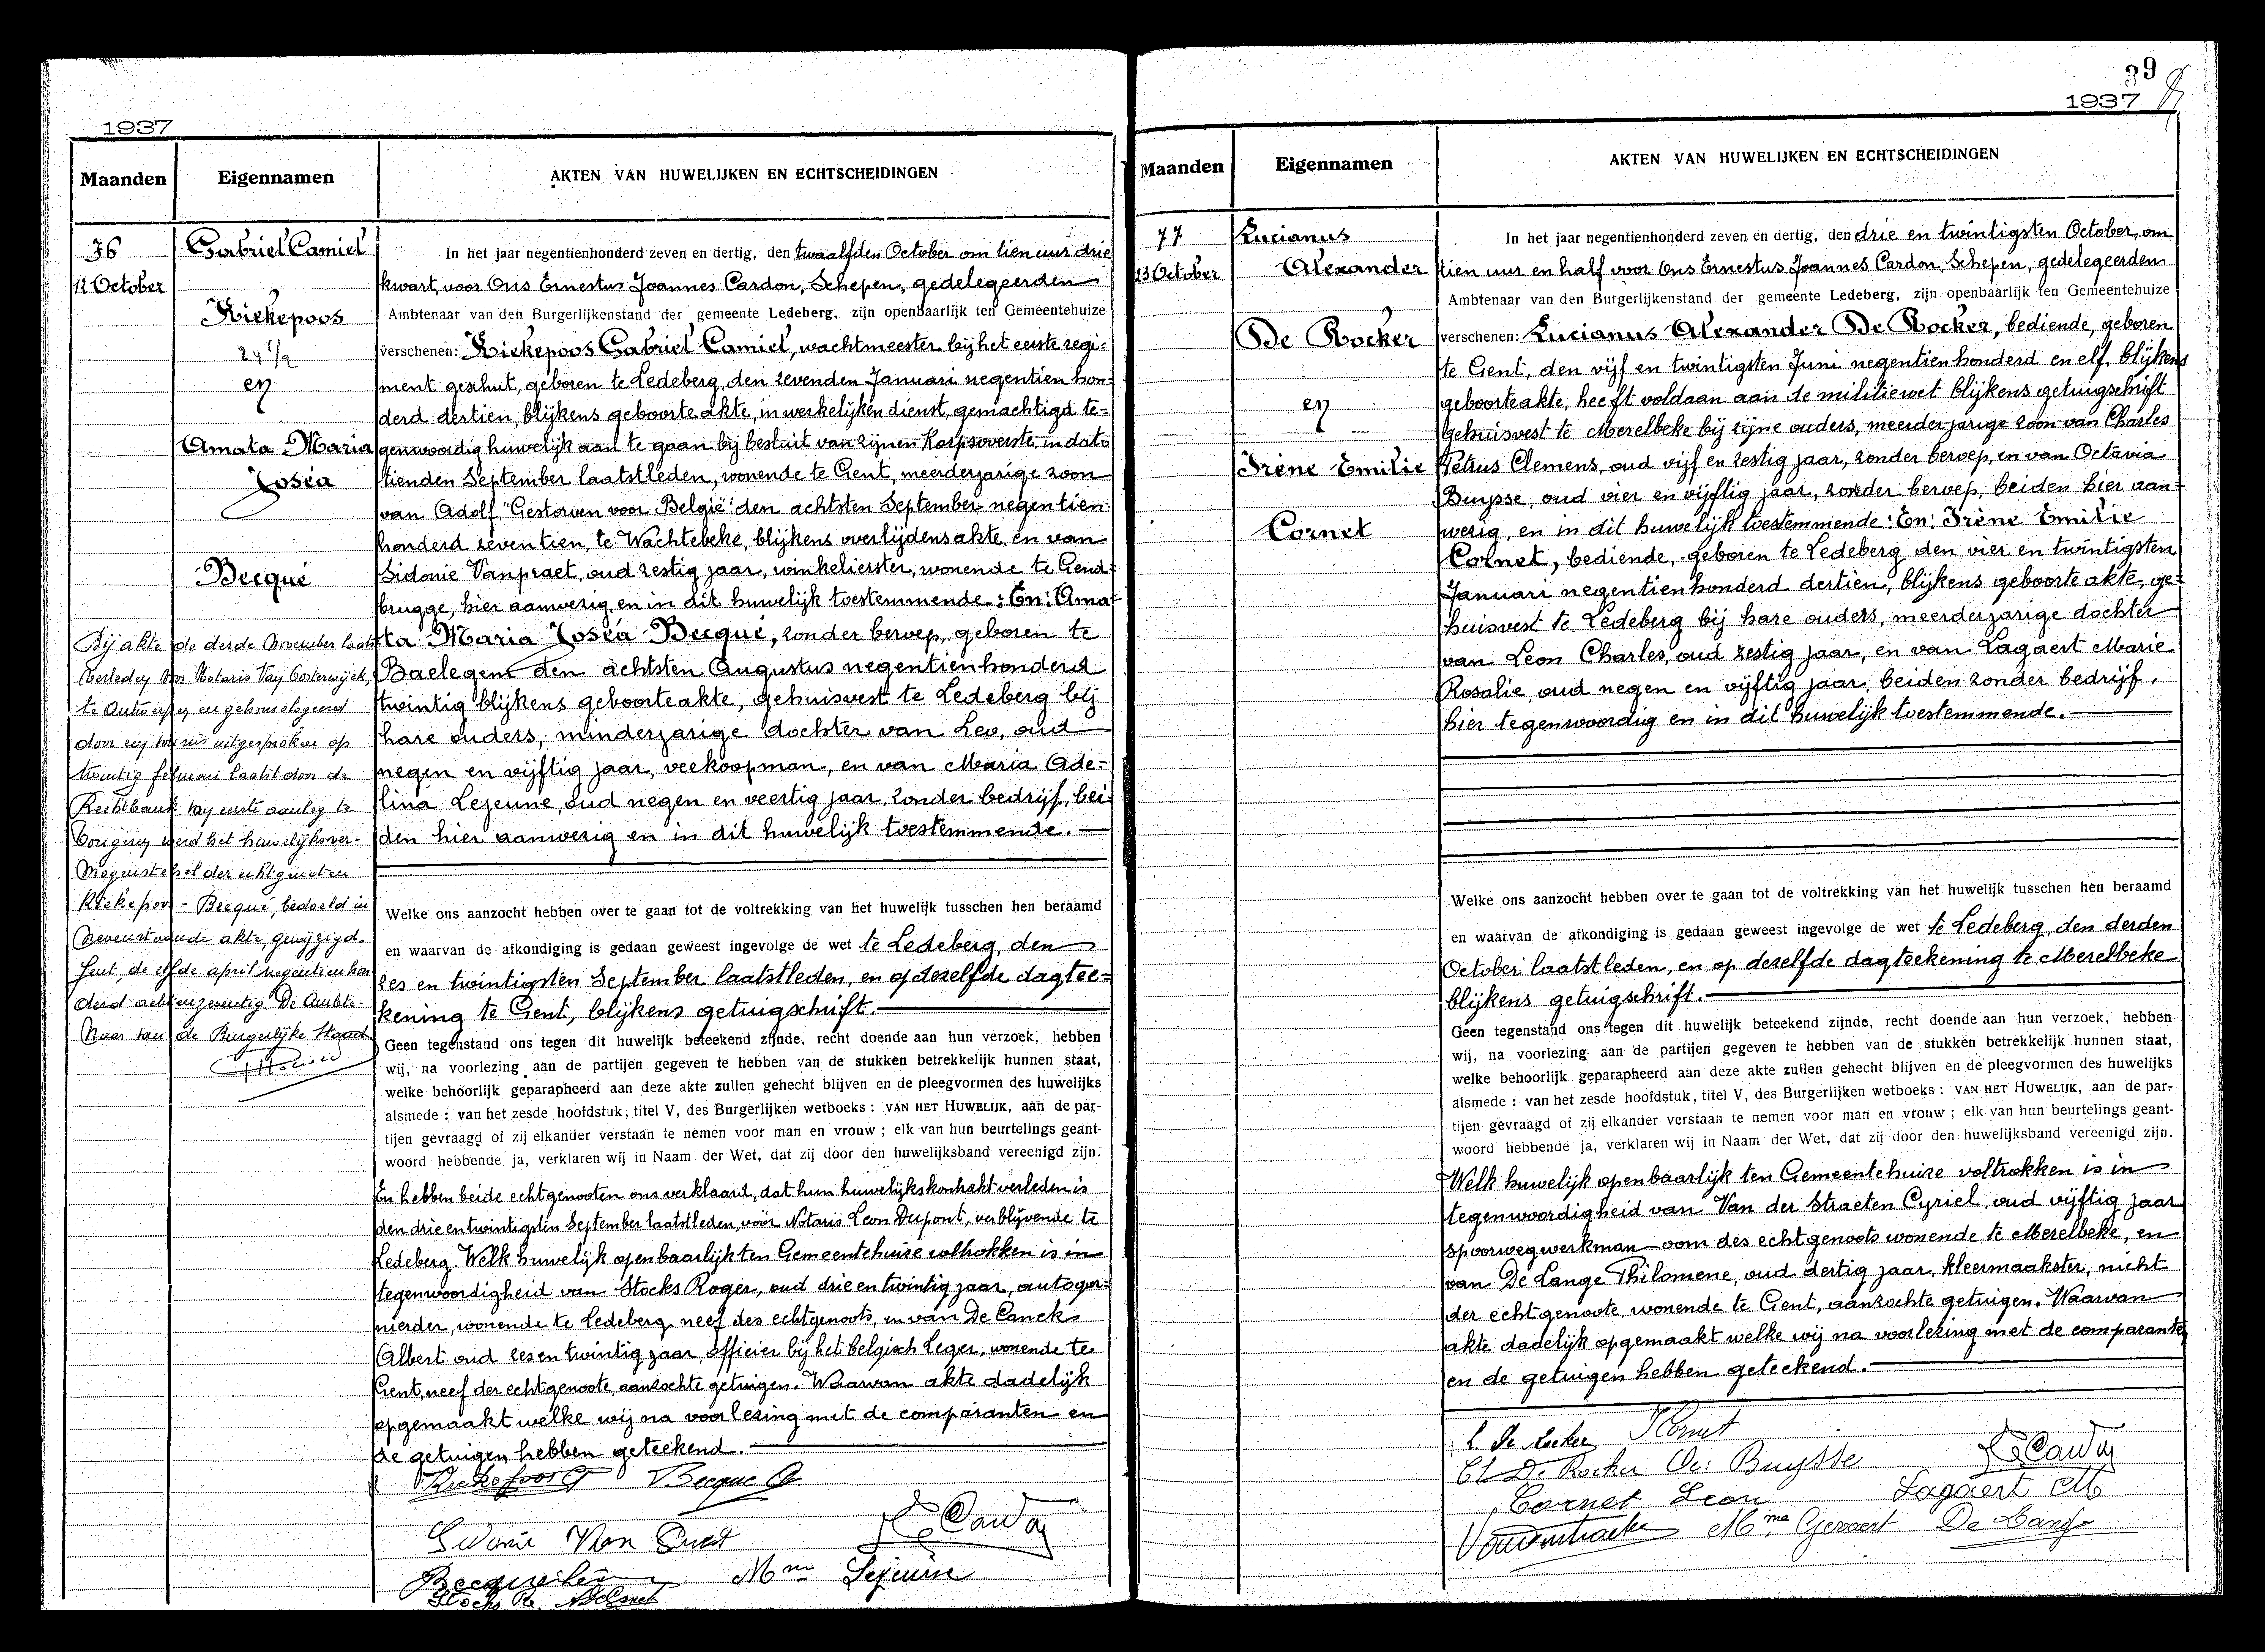 1937
Maanden
Eigennamen
AKTEN VAN HUWELIJKEN EN ECHTSCHEIDINGEN
76
12 October
Gabriel Camiel
Kiekepoos
24 1/2
en
Amata Maria
Joséa
Becqué
Bij akte de derde November laatst
verleden voor Notaris Van Oosterwijck,
te Antwerpen en gehomologeerd
door een vonnis uitgesproken op
twintig februari laatst door de
Rechtbank van eerste aanleg te
Tongeren werd het huwelijksver-
mogenstelsel der echtgenoten
Kiekepoos - Becqué, bedoeld in
nevenstaande akte, gewijzigd.
Gent, de elfde april negentienhon
derd achtenzeventig. De Ambte-
naar van de Burgerlijke Stand
In het jaar negentienhonderd zeven en dertig, den twaalfden October om tien uur drie
kwart, voor Ons Ernestus Joannes Cardon, Schepen, gedelegeerden
Ambtenaar van den Burgerlijkenstand der gemeente Ledeberg, zijn openbaarlijk ten Gemeentehuize
verschenen: Kiekepoos Gabriel Camiel, wachtmeester bij het eerste regi-
ment geschut, geboren te Ledeberg, den zevenden Januari negentien hon-
derd dertien, blijkens geboorteakte, in werkelijken dienst, gemachtigd te-
genwoordig huwelijk aan te gaan bij besluit van zijnen Korpsoverste in dato
tienden September laatstleden, wonende te Gent, meerderjarige zoon
van Adolf "Gestorven voor België" den achtsten September negentien-
honderd zeventien, te Wachtebeke, blijkens overlijdensakte, en van
Sidonie Vanpraet, oud zestig jaar, winkelierster, wonende te Gend-
brugge, hier aanwezig en in dit huwelijk toestemmende: En: Ama-
ta Maria Joséa Becqué, zonder beroep, geboren te
Baelegem den achtsten Augustus negentienhonderd
twintig blijkens geboorteakte, gehuisvest te Ledeberg bij
hare ouders, minderjarige dochter van Leo, oud
negen en vijftig jaar, veekoopman, en van Maria Ade-
lina Lejeune, oud negen en veertig jaar, zonder bedrijf, bei-
den hier aanwezig en in dit huwelijk toestemmende.
Welke ons aanzocht hebben over te gaan tot de voltrekking van het huwelijk tusschen hen beraamd
en waarvan de afkondiging is gedaan geweest ingevolge de wet te Ledeberg, den
zes en twintigsten September laatstleden, en op dezelfde dagtee-
kening te Gent, blijkens getuigschrift.
Geen tegenstand ons tegen dit huwelijk beteekend zijnde, recht doende aan hun verzoek, hebben
wij, na voorlezing aan de partijen gegeven te hebben van de stukken betrekkelijk hunnen staat,
welke behoorlijk geparapheerd aan deze akte zullen gehecht blijven en de pleegvormen des huwelijks
alsmede : van het zesde hoofdstuk, titel V, des Burgerlijken wetboeks : VAN HET HUWELIJK, aan de par-
tijen gevraagd of zij elkander verstaan te nemen voor man en vrouw ; elk van hun beurtelings geant-
woord hebbende ja, verklaren wij in Naam der Wet, dat zij door den huwelijksband vereenigd zijn.
En hebben beide echtgenooten ons verklaard, dat hun huwelijkskontrakt verleden is
den drie en twintigsten September laatstleden, vóór Notaris Leon Dupont, verblijvende te
Ledeberg. Welk huwelijk openbaarlijk ten Gemeentehuize voltrokken is in
tegenwoordigheid van Stocks Roger, oud drie en twintig jaar, autogar-
nierder, wonende te Ledeberg neef des echtgenoots, en van De Canck
Albert oud zes en twintig jaar, officier bij het belgisch Leger, wonende te
Gent, neef der echtgenoote, aanzochte getuigen. Waarvan akte dadelijk
opgemaakt welke wij na voorlezing met de comparanten en
de getuigen hebben geteekend.
Kiekepoos G Becque A
Sidonie Van Praet E Cardon
Becqué Léo Mme Lejeune
Stocks R.
39
1937
Maanden
Eigennamen
AKTEN VAN HUWELIJKEN EN ECHTSCHEIDINGEN
77
23 October
Lucianus
Alexander
De Rocker
en
Irène Emilie
Cornet
In het jaar negentienhonderd zeven en dertig, den drie en twintigsten October, om
tien uur en half voor Ons Ernestus Joannes Cardon, Schepen, gedelegeerden
Ambtenaar van den Burgerlijkenstand der gemeente Ledeberg, zijn openbaarlijk ten Gemeentehuize
verschenen: Lucianus Alexander De Rocker, bediende, geboren
te Gent, den vijf en twintigsten Juni negentien honderd en elf, blijkens
geboorteakte, heeft voldaan aan de militiewet blijkens getuigschrift
gehuisvest te Merelbeke bij zijne ouders, meerderjarige zoon van Charles
Petrus Clemens, oud vijf en zestig jaar, zonder beroep, en van Octavia
Buysse, oud vier en vijftig jaar, zonder beroep, beiden hier aan-
wezig, en in dit huwelijk toestemmende: En: Irène Emilie
Cornet, bediende, geboren te Ledeberg den vier en twintigsten
Januari negentienhonderd dertien, blijkens geboorteakte, ge-
huisvest te Ledeberg bij hare ouders, meerderjarige dochter
van Leon Charles, oud zestig jaar, en van Lagaert Marie
Rosalie, oud negen en vijftig jaar, beiden zonder bedrijf,
hier tegenwoordig en in dit huwelijk toestemmende.
Welke ons aanzocht hebben over te gaan tot de voltrekking van het huwelijk tusschen hen beraamd
en waarvan de afkondiging is gedaan geweest ingevolge de wet te Ledeberg, den derden
October laatstleden, en op dezelfde dagteekening te Merelbeke
blijkens getuigschrift.
Geen tegenstand ons tegen dit huwelijk beteekend zijnde, recht doende aan hun verzoek, hebben
wij, na voorlezing aan de partijen gegeven te hebben van de stukken betrekkelijk hunnen staat,
welke behoorlijk geparapheerd aan deze akte zullen gehecht blijven en de pleegvormen des huwelijks
alsmede : van het zesde hoofdstuk, titel V, des Burgerlijken wetboeks : VAN HET HUWELIJK, aan de par-
tijen gevraagd of zij elkander verstaan te nemen voor man en vrouw ; elk van hun beurtelings geant-
woord hebbende ja, verklaren wij in Naam der Wet, dat zij door den huwelijksband vereenigd zijn.
Welk huwelijk openbaarlijk ten Gemeentehuize voltrokken is in
tegenwoordigheid van Van der Straeten Cyriel, oud vijftig jaar
spoorwegwerkman oom des echtgenoots wonende te Merelbeke, en
van De Lange Philomene, oud dertig jaar, kleermaakster, nicht
der echtgenoote, wonende te Gent, aanzochte getuigen. Waarvan
akte dadelijk opgemaakt welke wij na voorlezing met de comparanten
en de getuigen hebben geteekend.
L De Rocker I Cornet
Ch De Rocker Oc: Buysse E Cardon
Cornet Leon Lagaert M
Vanderstraeten Mme Gevaert De Lange